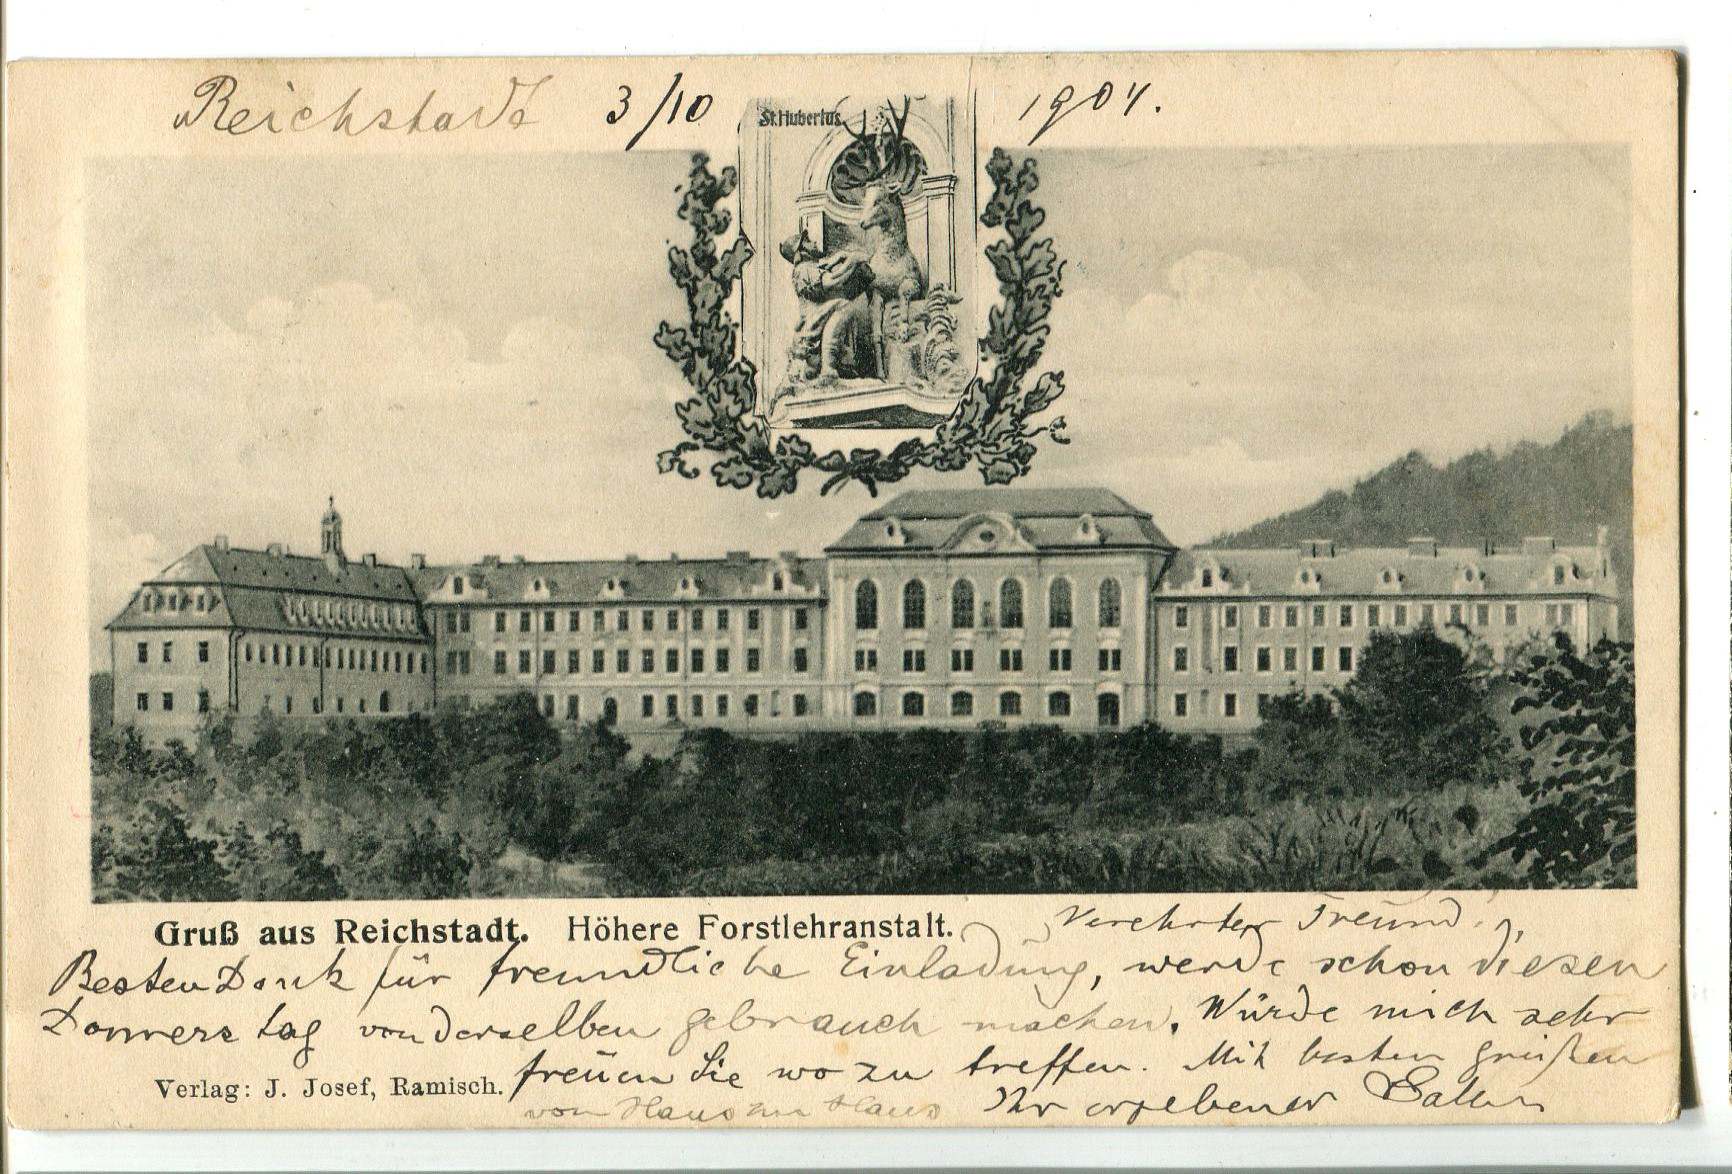 Reichstadt 3/10 1904.
St. Hubertus.
Gruß aus Reichstadt. Höhere Forstlehranstalt.
Verehrter Freund!
Besten Dank für freundliche Einladung, werde schon diesen
Donnerstag von derselben gebrauch machen. Würde mich sehr
freuen Sie wo zu treffen. Mit besten grüßen
von Haus zu Haus Ihr ergebener
Verlag: J. Josef, Ramisch.